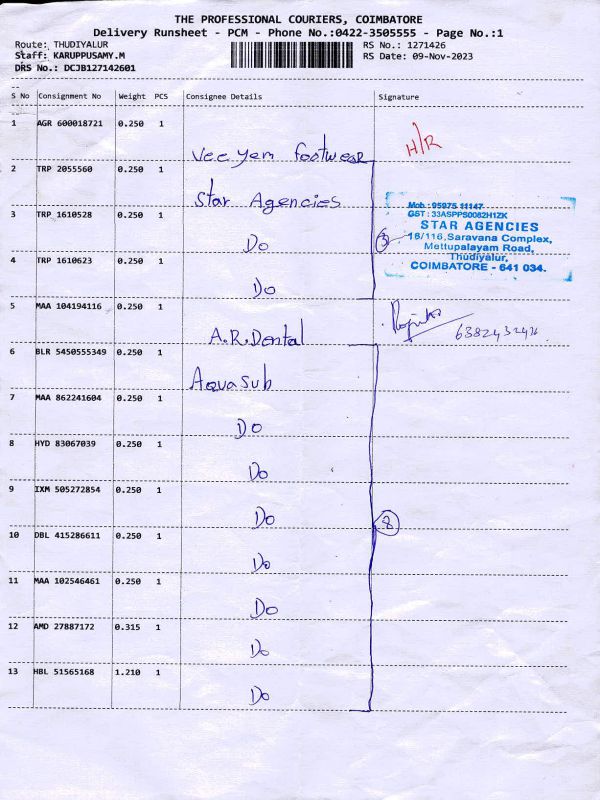 THE PROFESSIONAL COURIERS, COIMBATORE
Delivery Runsheet - PCM - Phone No.:0422-3505555 - Page No.:1
Route: THUDIYALUR RS No.: 1271426
Staff: KARUPPUSAMY.M RS Date: 09-Nov-2023
DRS No.: DCJB127142601
S No Consignment No Weight PCS Consignee Details Signature
1 AGR 600018721 0.250 1 Vee yem footwear H/R
2 TRP 2055560 0.250 1 Star Agencies
3 TRP 1610528 0.250 1 Do
4 TRP 1610623 0.250 1 Do
3
Mob : 95975 11147
GST : 33ASPPS0082H1ZK
STAR AGENCIES
16/116, Saravana Complex,
Mettupalayam Road,
Thudiyalur,
COIMBATORE - 641 034.
5 MAA 104194116 0.250 1 A.R.Dental
6 BLR 5450555349 0.250 1 Aquasub
7 MAA 862241604 0.250 1 Do
8 HYD 83067039 0.250 1 Do
9 IXM 505272854 0.250 1 Do
8
10 DBL 415286611 0.250 1 Do
11 MAA 102546461 0.250 1 Do
12 AMD 27887172 0.315 1 Do
13 HBL 51565168 1.210 1 Do